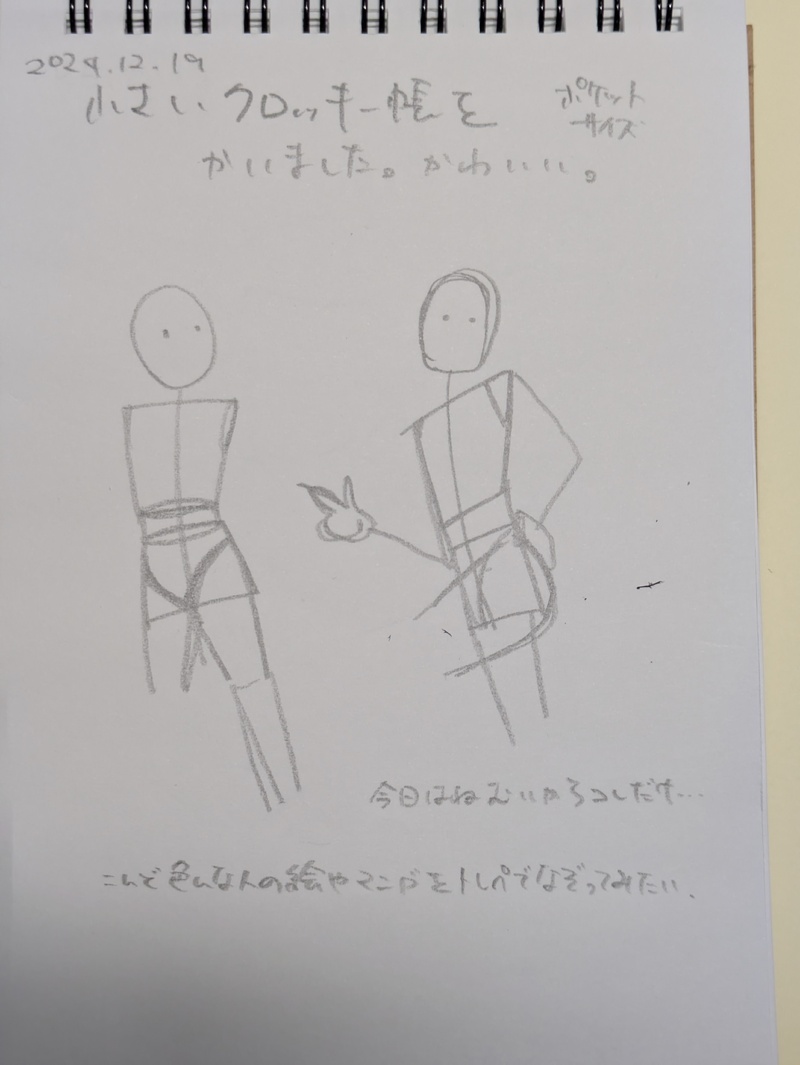 2024.12.19
小さいクロッキー帳を
ポケット
サイズ
かいました。かわいい。
今日はねむいからコレだけ…
こんど色んな人の絵やマンガをトレペでなぞってみたい.